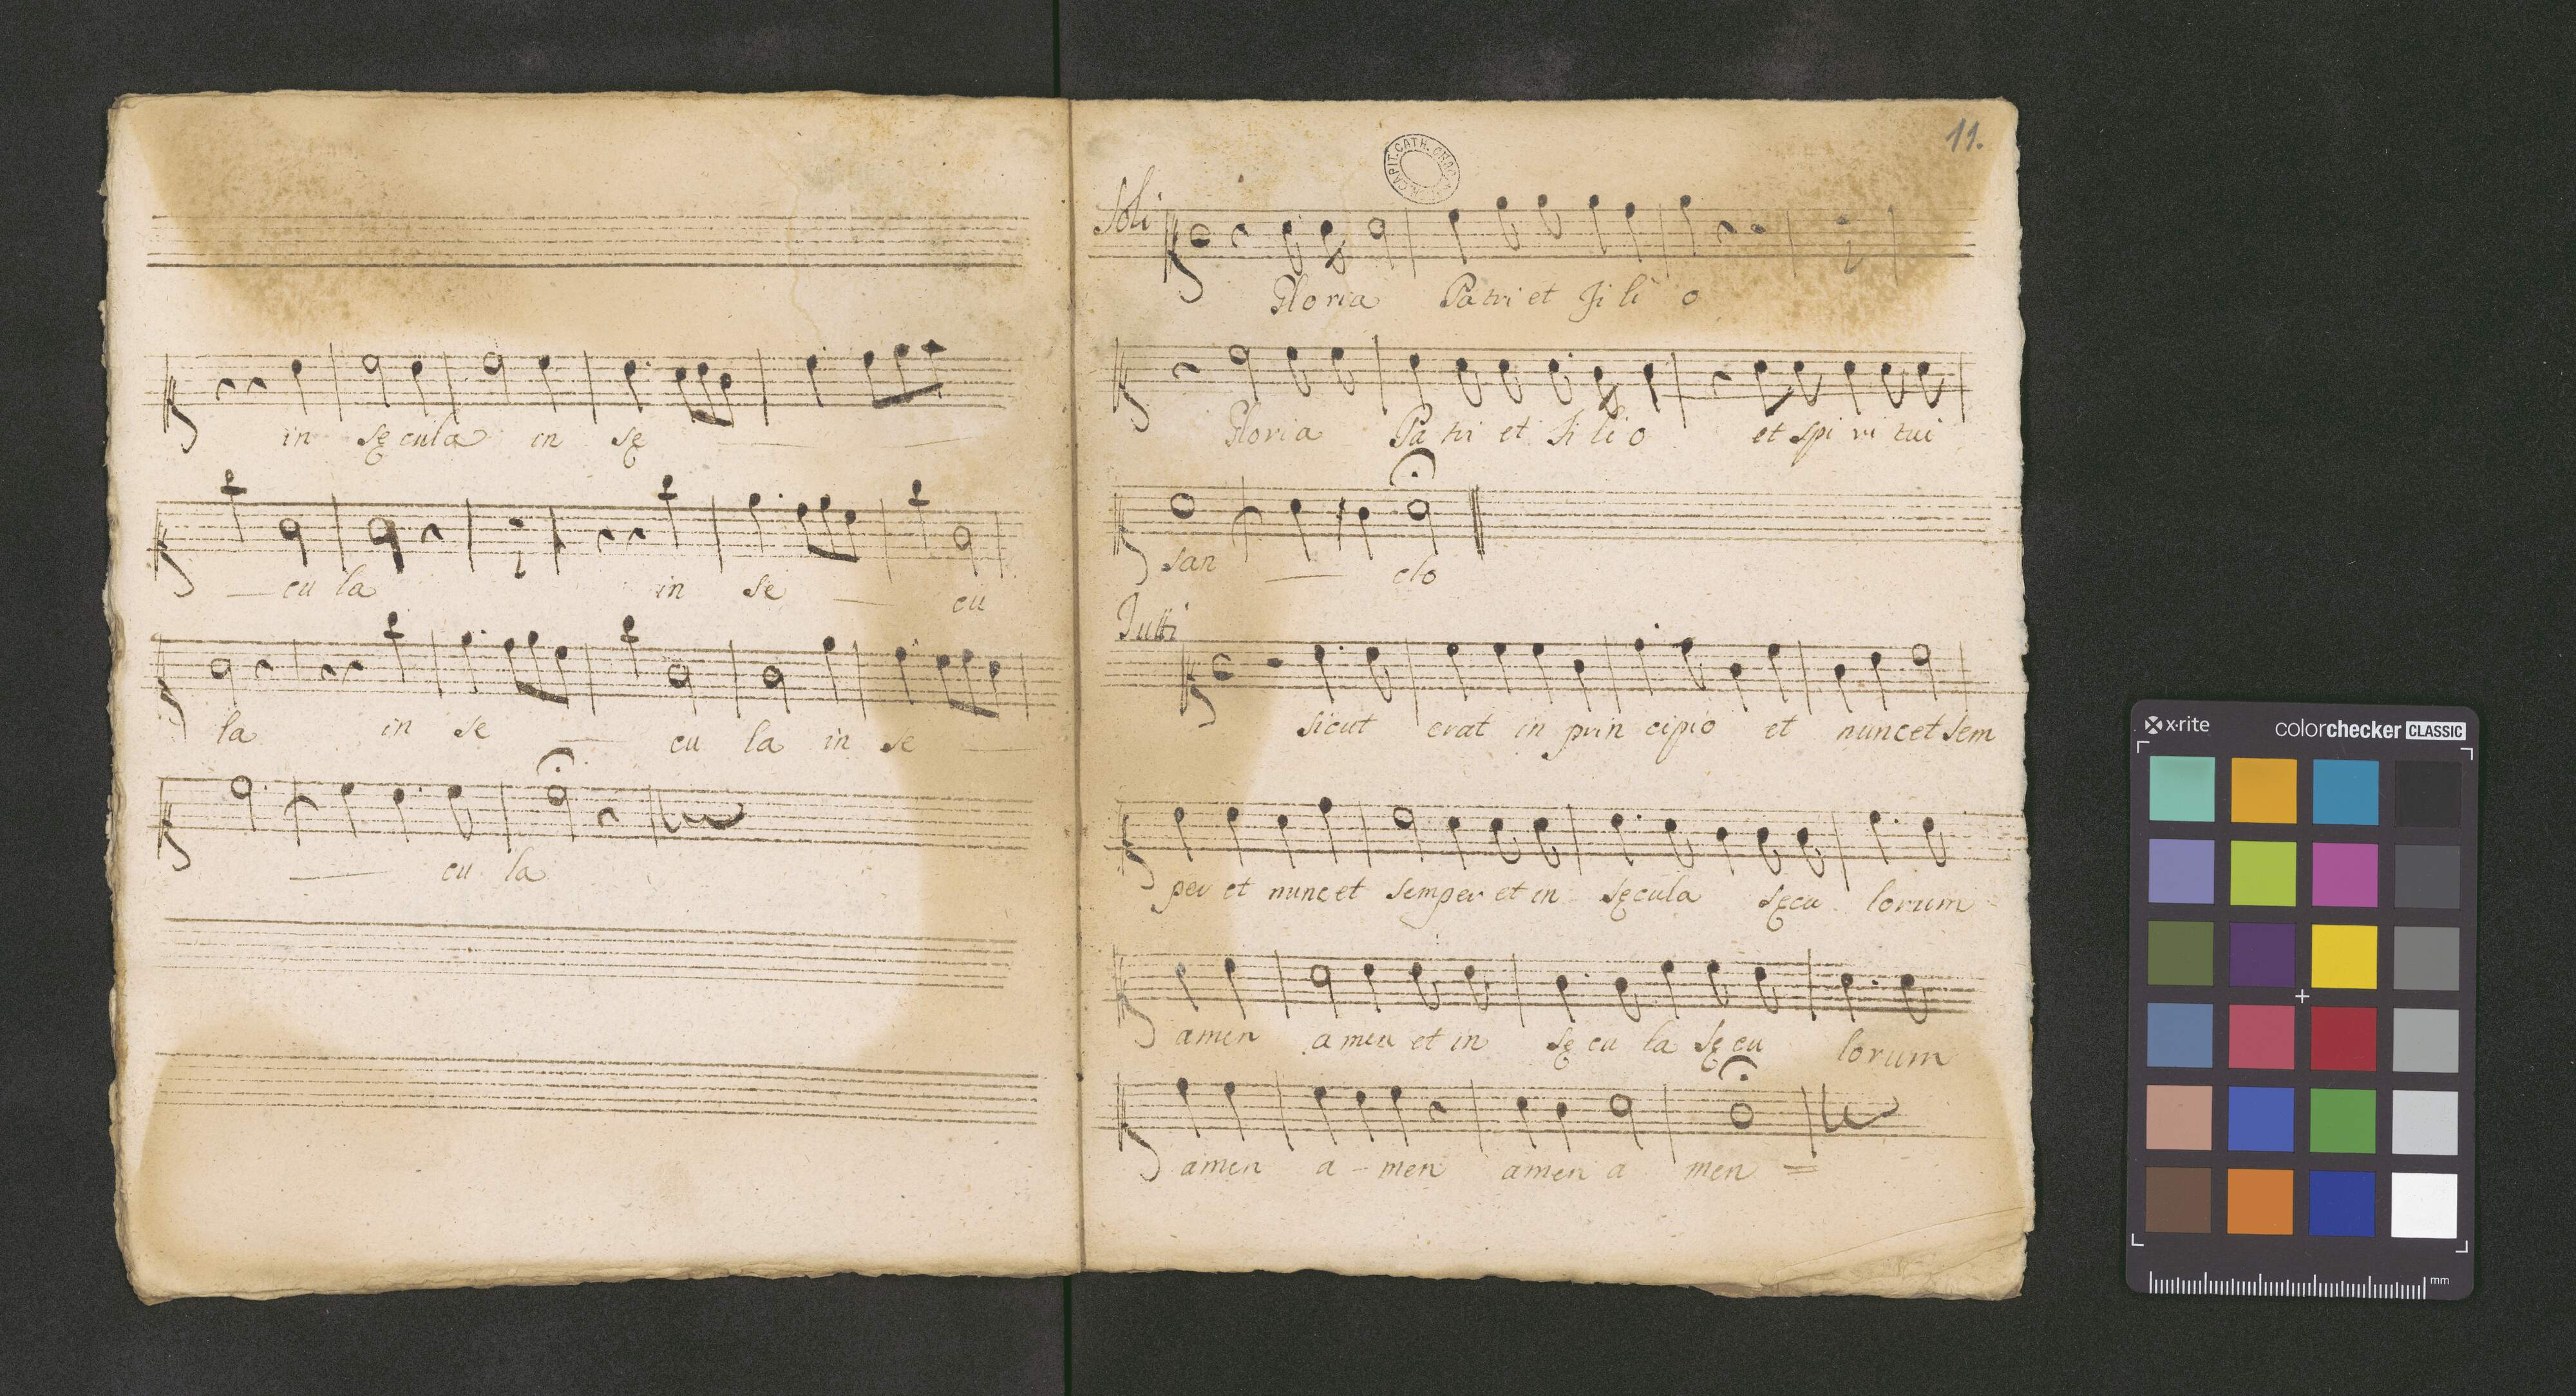 in sęcula in sę
cu la in se cu
la in se cu la in se
cu la
11.
Soli
Gloria Patri et Fi li o
Gloria Pa tri et Fi li o et spi ri tui
san cto
Tutti
sicut erat in prin cipio et nunc et sem
per et nunc et semper et in sęcula sęcu lorum
amen amen et in sę cu la sę cu lorum
amen a - men amen a men =
x·rite colorchecker CLASSIC
mm